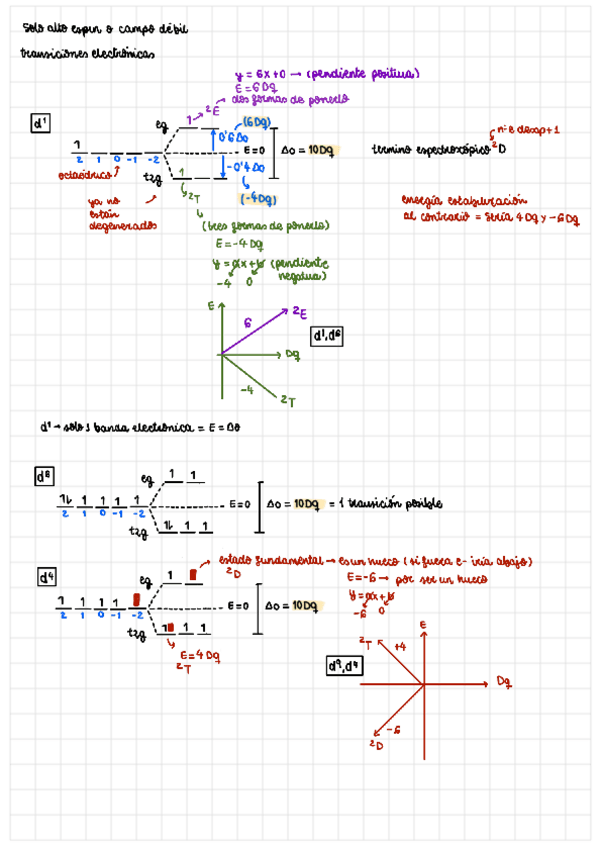 Solo alto espín o campo débil
transiciones electrónicas
y = 6x+0 → (pendiente positiva)
E = 6Dq
1 → ²E → dos formas de ponerlo
d¹
eg
(6Dq)
0'6Δo
1
2 1 0 -1 -2
E=0
Δo = 10Dq
termino espectroscópico ²D
nº e desap+1
-0'4Δo
octaédrico
t2g
1
(-4Dq)
ya no
están
degenerados
²T
(tres formas de ponerlo)
E = -4Dq
y = ax+b (pendiente
negativa)
-4 0
energía estabilización
al contrario = sería 4Dq y -6Dq
E
6
²E
d¹,d⁶
Dq
-4
²T
d¹ → solo 1 banda electrónica = E = Δo
d⁶
eg 1 1
1↓ 1 1 1 1
2 1 0 -1 -2
E=0
Δo = 10Dq = 1 transición posible
t2g 1↓ 1 1
d⁴
estado fundamental → es un hueco (si fuera e- iría abajo)
²D
E=-6 → por ser un hueco
y = ax+b
-6 0
eg 1
1 1 1 1
2 1 0 -1 -2
E=0
Δo = 10Dq
t2g 1 1 1
E = 4Dq
²T
E
²T
+4
d⁹,d⁴
Dq
-6
²D